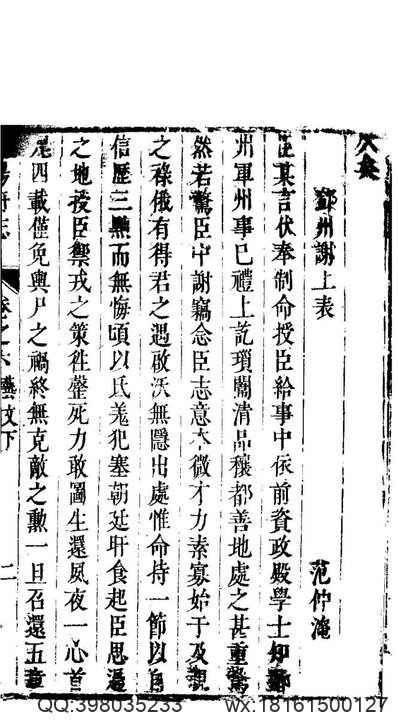 鄧州謝上表
范仲淹
臣某言伏奉制命授臣給事中依前資政殿學士知鄧
州軍州事已禮上訖瑣闥清品穰都善地處之甚重驚
然若驚臣中謝竊念臣志意本微才力素寡始于及親
之祿俄有得君之遇啟沃無隱出處惟命持一節以自
信歷三黜而無悔頃以氐羌犯塞朝廷旰食起臣思過
之地授臣禦戎之策徃罄死力敢圖生還夙夜一心首
尾四載僅免輿尸之禍終無克敵之勲一旦召還五章
卷之六藝文下
二
QQ:398035233 wx:18161500127